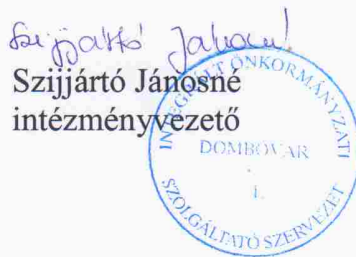 Szijjártó Jánosné
Szijjártó Jánosné
intézményvezető
INTEGRÁLT ÖNKORMÁNYZATI
DOMBÓVÁR
1.
SZOLGÁLTATÓ SZERVEZET